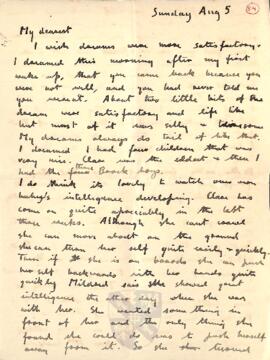 Sunday Aug 5
My dearest
I wish dreams were more satisfactory.
I dreamed this morning after my first
wake up, that you came back because you
were not well, and you had never told me
you weren't. About two little bits of the
dream were satisfactory and life like
but most of it was silly
My dreams always do tail off like that.
I dreamed I had four children that was
very nice. Clare was the eldest & then I
had the three boys.
I do think it's lovely to watch one's own
baby's intelligence developing. Clare has
come on quite appreciably in the last
three weeks. Although she can't crawl
she can move about on the ground
she can turn her self quite easily & quickly.
Then if she is on boards she can push
her self backwards with her hands quite
quickly. Mildred said she showed great
intelligence the other day when she was
with her. She wanted something in
front of her and the only thing she
found she could do was to push herself
away from it. So she turned